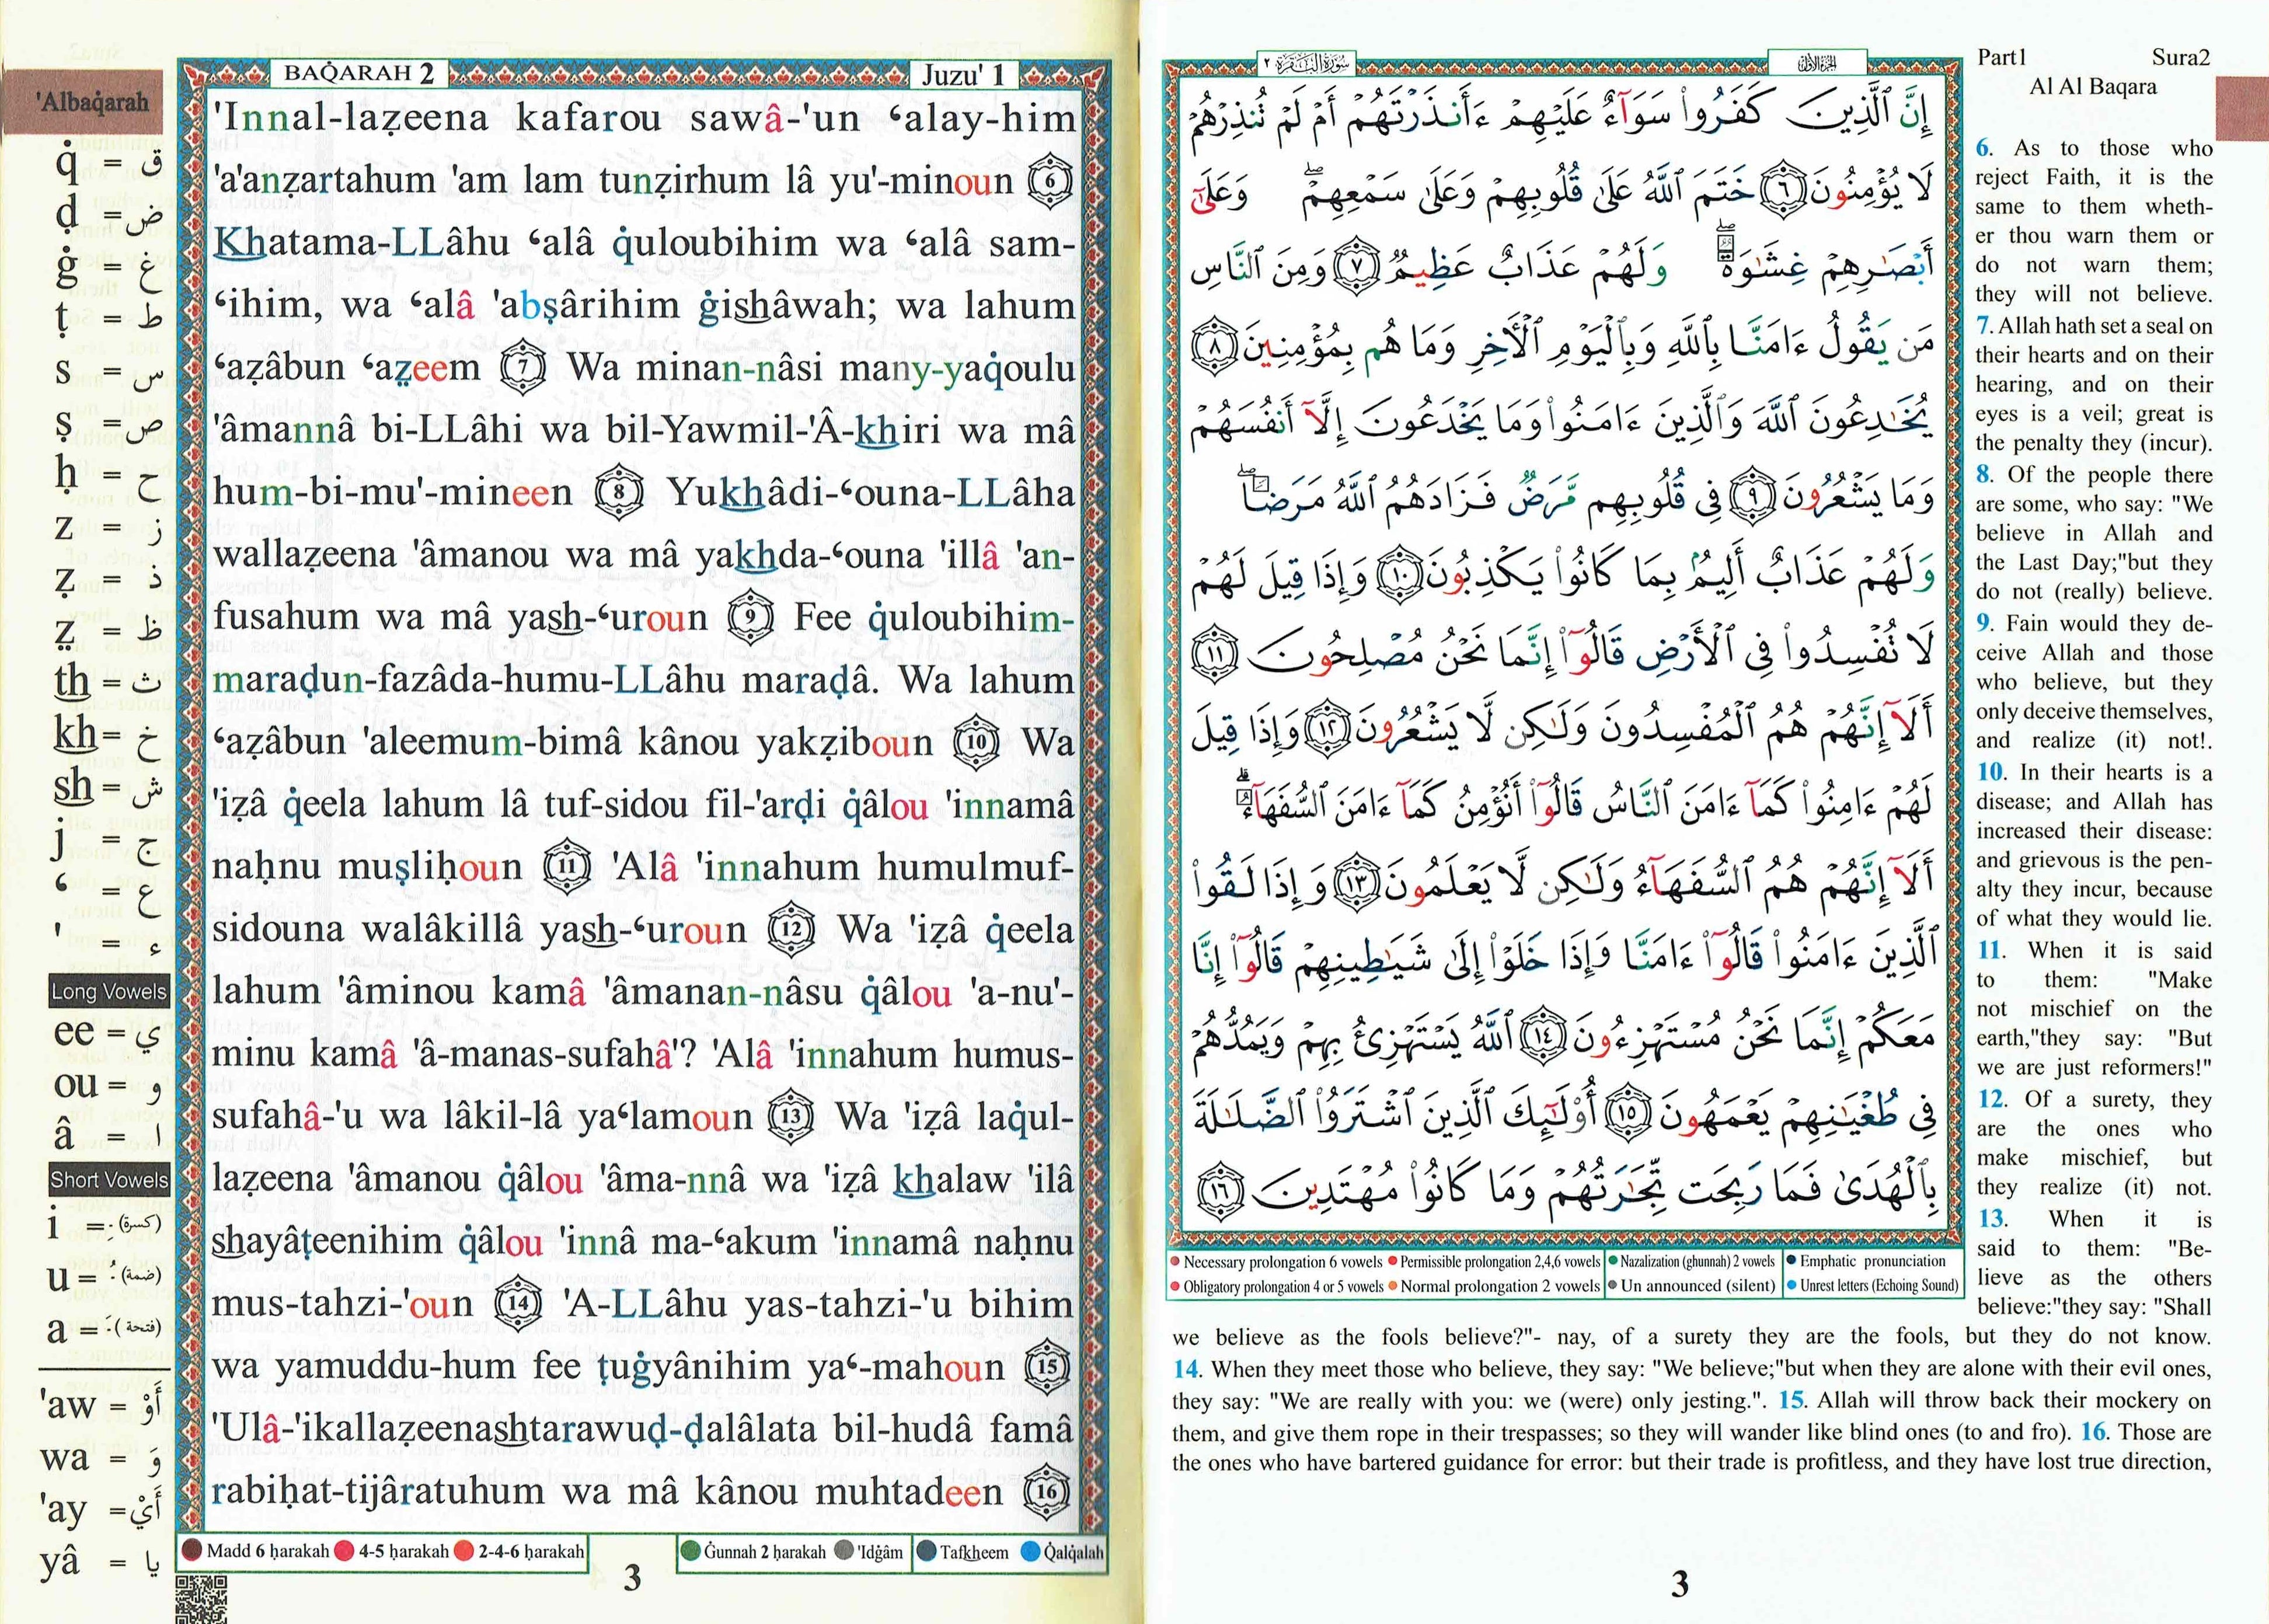 'Albaq̇arah
q̇ = ق
ḍ = ض
ġ = غ
ṭ = ط
s = س
ṣ = ص
ḥ = ح
z = ز
ẓ = ذ
ẓ̣ = ظ
th = ث
kh = خ
sh = ش
j = ج
‘ = ع
' = ء
Long Vowels
ee = ي
ou = و
â = ا
Short Vowels
i = (كسرة) ـِ
u = (ضمة) ـُ
a = (فتحة) ـَ
'aw = أَوْ
wa = وَ
'ay = أَيْ
yâ = يا
BAQ̇ARAH 2
Juzu' 1
'Innal-laẓeena kafarou sawâ-'un ‘alay-him
'a'anẓartahum 'am lam tunẓirhum lâ yu'-minoun 6
Khatama-LLâhu ‘alâ q̇uloubihim wa ‘alâ sam-
‘ihim, wa ‘alâ 'abṣârihim ġishâwah; wa lahum
‘aẓâbun ‘aẓ̣eem 7 Wa minan-nâsi many-yaq̇oulu
'âmannâ bi-LLâhi wa bil-Yawmil-'Â-khiri wa mâ
hum-bi-mu'-mineen 8 Yukhâdi-‘ouna-LLâha
wallaẓeena 'âmanou wa mâ yakhda-‘ouna 'illâ 'an-
fusahum wa mâ yash-‘uroun 9 Fee q̇uloubihim-
maraḍun-fazâda-humu-LLâhu maraḍâ. Wa lahum
‘aẓâbun 'aleemum-bimâ kânou yakẓiboun 10 Wa
'iẓâ q̇eela lahum lâ tuf-sidou fil-'arḍi q̇âlou 'innamâ
naḥnu muṣliḥoun 11 'Alâ 'innahum humulmuf-
sidouna walâkillâ yash-‘uroun 12 Wa 'iẓâ q̇eela
lahum 'âminou kamâ 'âmanan-nâsu q̇âlou 'a-nu'-
minu kamâ 'â-manas-sufahâ'? 'Alâ 'innahum humus-
sufahâ-'u wa lâkil-lâ ya‘lamoun 13 Wa 'iẓâ laq̇ul-
laẓeena 'âmanou q̇âlou 'âma-nnâ wa 'iẓâ khalaw 'ilâ
shayâṭeenihim q̇âlou 'innâ ma-‘akum 'innamâ naḥnu
mus-tahzi-'oun 14 'A-LLâhu yas-tahzi-'u bihim
wa yamuddu-hum fee ṭuġyânihim ya‘-mahoun 15
'Ulâ-'ikallaẓeenashtarawuḍ-ḍalâlata bil-hudâ famâ
rabiḥat-tijâratuhum wa mâ kânou muhtadeen 16
Madd 6 ḥarakah 4-5 ḥarakah 2-4-6 ḥarakah
Ġunnah 2 ḥarakah 'Idġâm Tafkheem Q̇alq̇alah
3
سُورَةُ البَقَرَة ٢
الجزء الأول
إِنَّ ٱلَّذِينَ كَفَرُوا۟ سَوَآءٌ عَلَيْهِمْ ءَأَنذَرْتَهُمْ أَمْ لَمْ تُنذِرْهُمْ
لَا يُؤْمِنُونَ ٦ خَتَمَ ٱللَّهُ عَلَىٰ قُلُوبِهِمْ وَعَلَىٰ سَمْعِهِمْ ۖ وَعَلَىٰٓ
أَبْصَٰرِهِمْ غِشَٰوَةٌ ۖ وَلَهُمْ عَذَابٌ عَظِيمٌ ٧ وَمِنَ ٱلنَّاسِ
مَن يَقُولُ ءَامَنَّا بِٱللَّهِ وَبِٱلْيَوْمِ ٱلْـَٔاخِرِ وَمَا هُم بِمُؤْمِنِينَ ٨
يُخَٰدِعُونَ ٱللَّهَ وَٱلَّذِينَ ءَامَنُوا۟ وَمَا يَخْدَعُونَ إِلَّآ أَنفُسَهُمْ
وَمَا يَشْعُرُونَ ٩ فِى قُلُوبِهِم مَّرَضٌ فَزَادَهُمُ ٱللَّهُ مَرَضًا ۖ
وَلَهُمْ عَذَابٌ أَلِيمٌۢ بِمَا كَانُوا۟ يَكْذِبُونَ ١٠ وَإِذَا قِيلَ لَهُمْ
لَا تُفْسِدُوا۟ فِى ٱلْأَرْضِ قَالُوٓا۟ إِنَّمَا نَحْنُ مُصْلِحُونَ ١١
أَلَآ إِنَّهُمْ هُمُ ٱلْمُفْسِدُونَ وَلَٰكِن لَّا يَشْعُرُونَ ١٢ وَإِذَا قِيلَ
لَهُمْ ءَامِنُوا۟ كَمَآ ءَامَنَ ٱلنَّاسُ قَالُوٓا۟ أَنُؤْمِنُ كَمَآ ءَامَنَ ٱلسُّفَهَآءُ ۗ
أَلَآ إِنَّهُمْ هُمُ ٱلسُّفَهَآءُ وَلَٰكِن لَّا يَعْلَمُونَ ١٣ وَإِذَا لَقُوا۟
ٱلَّذِينَ ءَامَنُوا۟ قَالُوٓا۟ ءَامَنَّا وَإِذَا خَلَوْا۟ إِلَىٰ شَيَٰطِينِهِمْ قَالُوٓا۟ إِنَّا
مَعَكُمْ إِنَّمَا نَحْنُ مُسْتَهْزِءُونَ ١٤ ٱللَّهُ يَسْتَهْزِئُ بِهِمْ وَيَمُدُّهُمْ
فِى طُغْيَٰنِهِمْ يَعْمَهُونَ ١٥ أُو۟لَٰٓئِكَ ٱلَّذِينَ ٱشْتَرَوُا۟ ٱلضَّلَٰلَةَ
بِٱلْهُدَىٰ فَمَا رَبِحَت تِّجَٰرَتُهُمْ وَمَا كَانُوا۟ مُهْتَدِينَ ١٦
Necessary prolongation 6 vowels Permissible prolongation 2,4,6 vowels Nazalization (ghunnah) 2 vowels Emphatic pronunciation
Obligatory prolongation 4 or 5 vowels Normal prolongation 2 vowels Un announced (silent) Unrest letters (Echoing Sound)
Part1 Sura2
Al Al Baqara
6. As to those who
reject Faith, it is the
same to them wheth-
er thou warn them or
do not warn them;
they will not believe.
7. Allah hath set a seal on
their hearts and on their
hearing, and on their
eyes is a veil; great is
the penalty they (incur).
8. Of the people there
are some, who say: "We
believe in Allah and
the Last Day;"but they
do not (really) believe.
9. Fain would they de-
ceive Allah and those
who believe, but they
only deceive themselves,
and realize (it) not!.
10. In their hearts is a
disease; and Allah has
increased their disease:
and grievous is the pen-
alty they incur, because
of what they would lie.
11. When it is said
to them: "Make
not mischief on the
earth,"they say: "But
we are just reformers!"
12. Of a surety, they
are the ones who
make mischief, but
they realize (it) not.
13. When it is
said to them: "Be-
lieve as the others
believe:"they say: "Shall
we believe as the fools believe?"- nay, of a surety they are the fools, but they do not know.
14. When they meet those who believe, they say: "We believe;"but when they are alone with their evil ones,
they say: "We are really with you: we (were) only jesting.". 15. Allah will throw back their mockery on
them, and give them rope in their trespasses; so they will wander like blind ones (to and fro). 16. Those are
the ones who have bartered guidance for error: but their trade is profitless, and they have lost true direction,
3